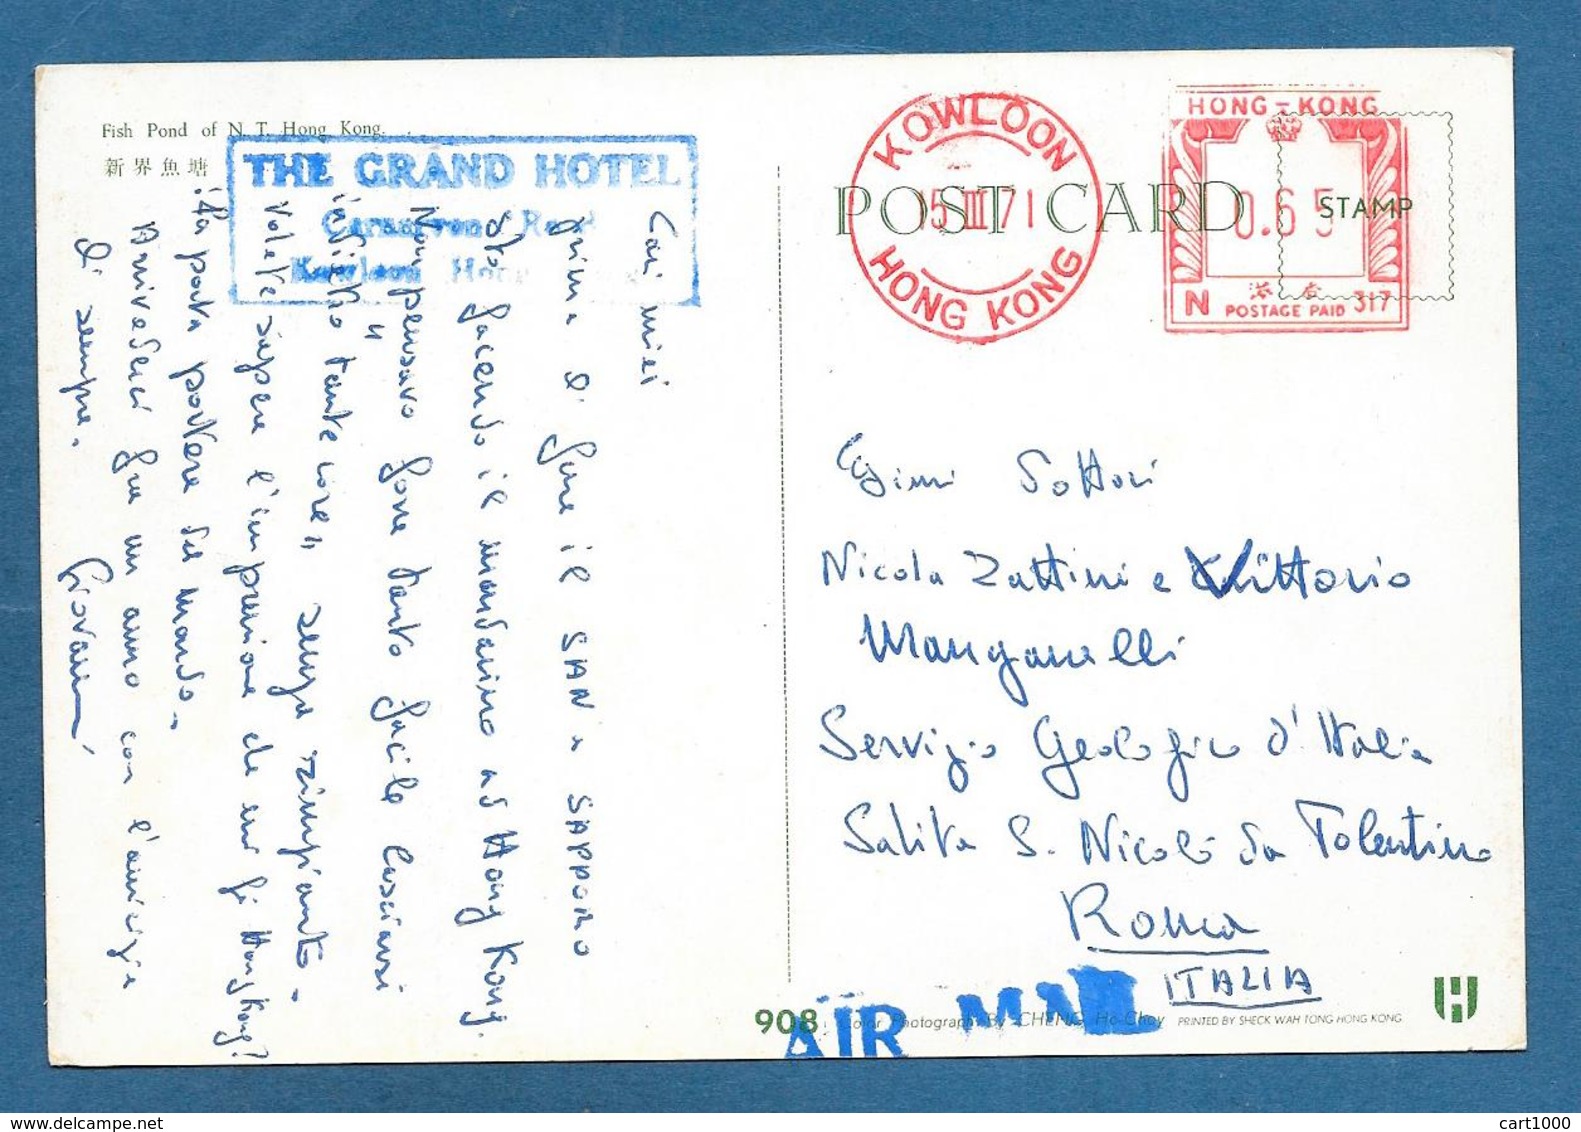 Fish Pond of N. T. Hong Kong.
新界魚塘
THE GRAND HOTEL
Carnarvon Road
Kowloon Hong
Cari miei
prima di fare il SAN e SAPPORO
sto facendo il mandarino ad Hong Kong.
Non pensavo fosse tanto facile lasciarsi
"indietro tante cose" senza rimpianto.
Volete sapere l'impressione che mi fa Hong Kong?
Ha porta portese del mondo.
Arrivederci fra un anno con l'amicizia
di sempre.
Giovanni
KOWLOON
15 III 71
HONG KONG
HONG-KONG
0.65
港 香
N POSTAGE PAID 317
POST CARD
STAMP
Egimi Dottori
Nicola Zattini e Vittorio
Manganelli
Servizio Geologico d'Italia
Salita S. Nicolò da Tolentino
Roma
ITALIA
908 Color Photograph By CHENG Ho-Choy PRINTED BY SHECK WAH TONG HONG KONG
AIR MAIL
cart1000